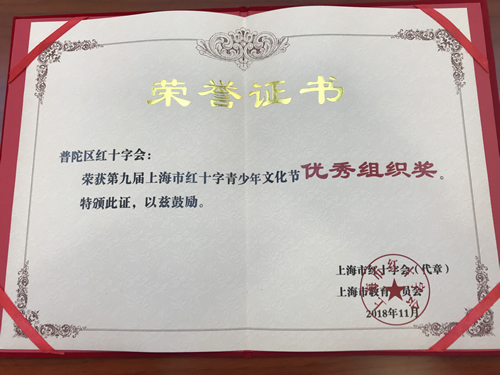 荣誉证书
普陀区红十字会：
荣获第九届上海市红十字青少年文化节优秀组织奖。
特颁此证，以兹鼓励。
上海市红十字会（代章）
上海市教育委员会
2018年11月